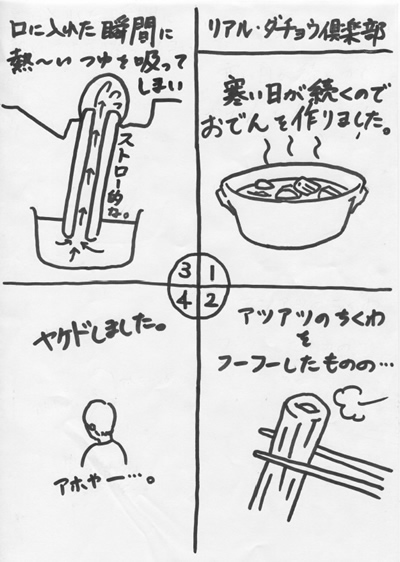 リアル・ダチョウ倶楽部
寒い日が続くので
おでんを作りました。
1
アツアツのちくわ
を
フーフーしたものの…
2
口に入れた瞬間に
熱〜いつゆを吸って
しまい
ストロー的な。
3
ヤケドしました。
アホやー…。
4